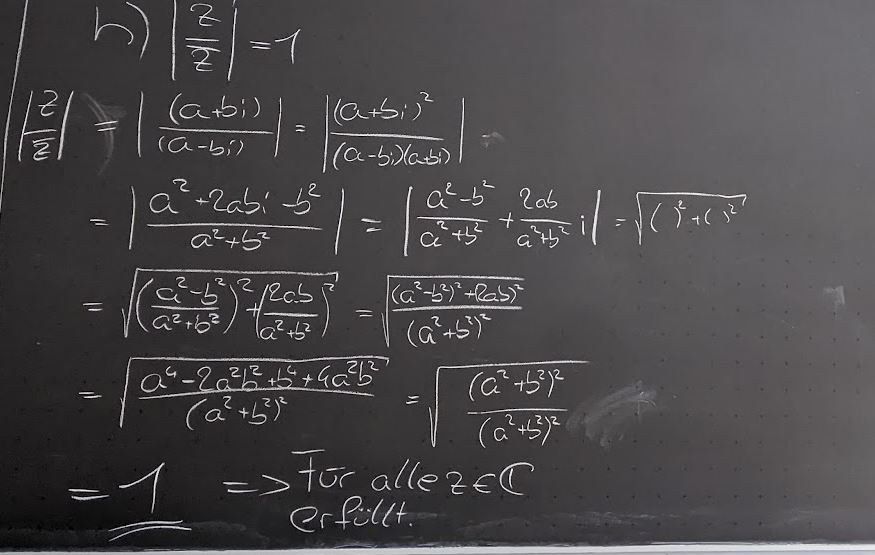 h) |z/z̅| = 1
|z/z̅| = |(a+bi)/(a-bi)| = |(a+bi)²/(a-bi)(a+bi)|
= |(a²+2abi-b²)/(a²+b²)| = |(a²-b²)/(a²+b²) + 2ab/(a²+b²) i| = √(( )²+( )²)
= √(((a²-b²)/(a²+b²))² + (2ab/(a²+b²))²) = √(((a²-b²)²+(2ab)²)/(a²+b²)²)
= √((a⁴-2a²b²+b⁴+4a²b²)/(a²+b²)²) = √((a²+b²)²/(a²+b²)²)
= 1 => Für alle z ∈ ℂ
erfüllt.